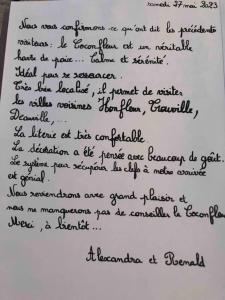 samedi 27 mai 2023
Nous vous confirmons ce qu'ont dit les précédents
visiteurs : le Coconfleur est un véritable
havre de paix... Calme et sérénité.
Idéal pour se ressourcer.
Très bien localisé, il permet de visiter
les villes voisines Honfleur, Trouville,
Deauville, ...
La literie est très confortable.
La décoration a été pensée avec beaucoup de goût.
Le système pour récupérer les clefs à notre arrivée
est génial.
Nous reviendrons avec grand plaisir et
nous ne manquerons pas de conseiller le Coconfleur
Merci, à bientôt...
Alexandra et Renald